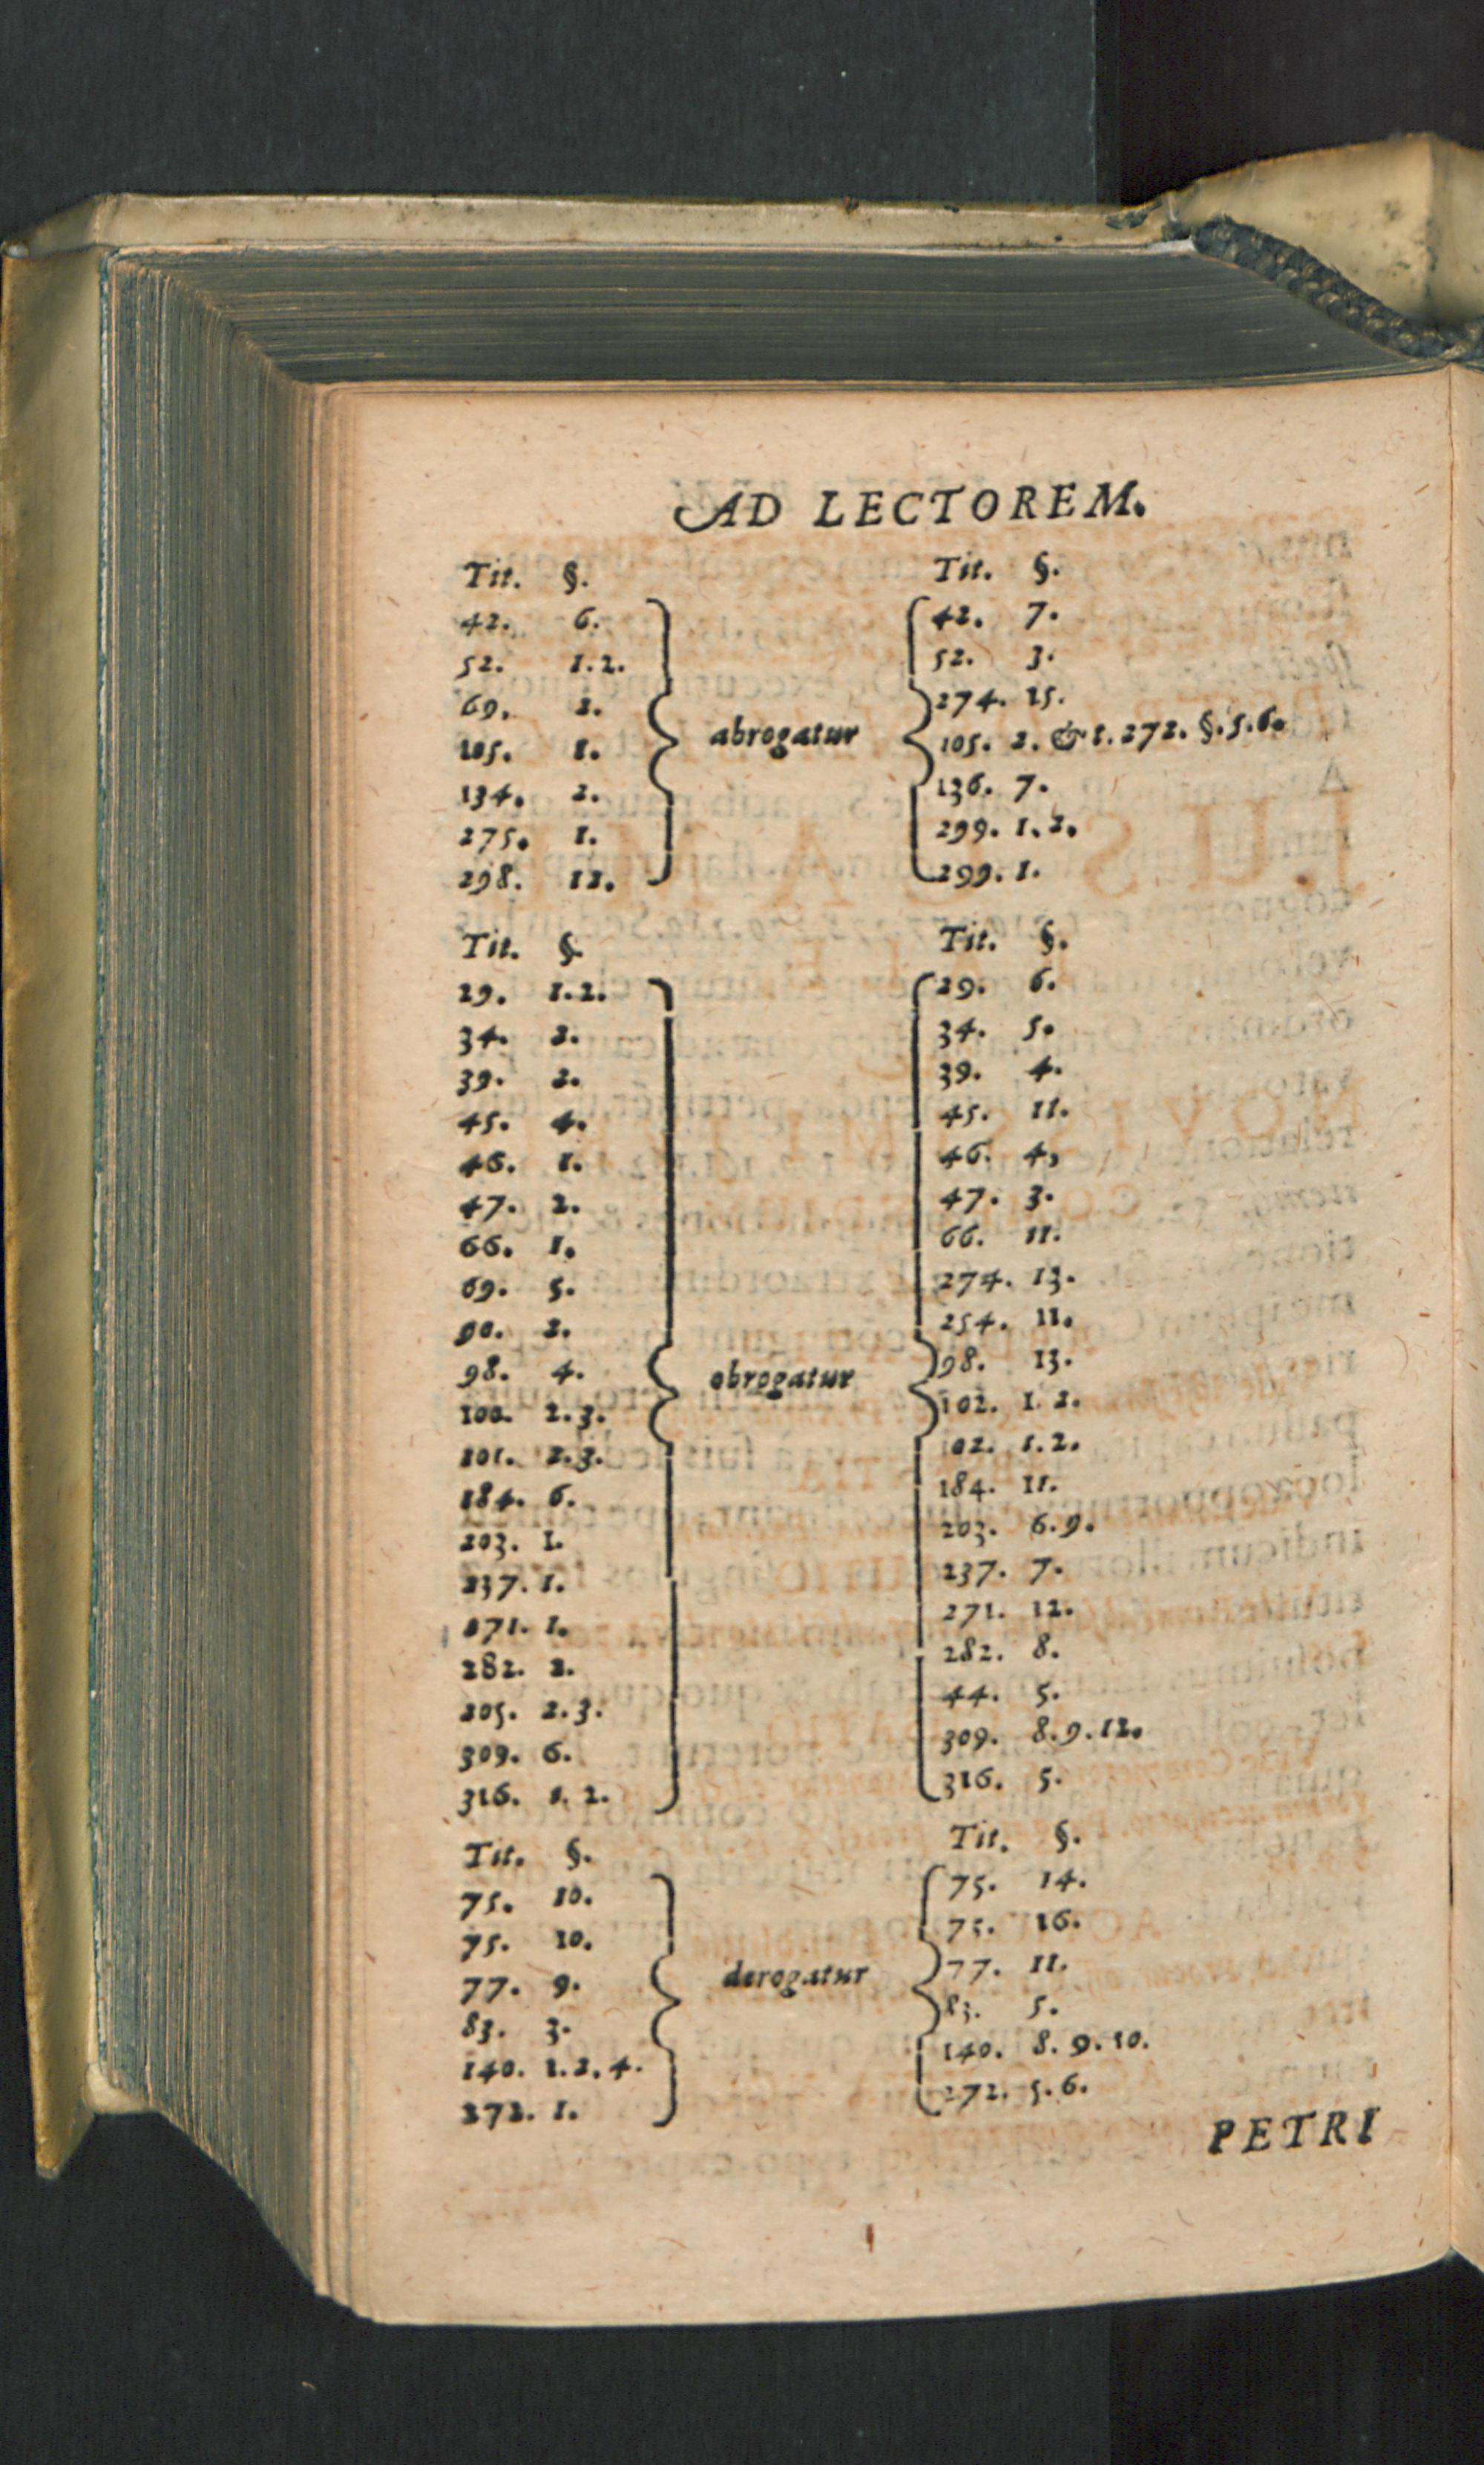 AD LECTOREM.
Tit. §. Tit. §.
42. 6. 42. 7.
52. 1.2. 52. 3.
69. 2. 274. 15.
abrogatur
105. 1. 105. 2. & t. 272. §. 5.6.
134. 2. 136. 7.
275. 1. 299. 1.2.
298. 12. 299. 1.
Tit. §. Tit. §.
29. 1.2. 29. 6.
34. 2. 34. 5.
39. 2. 39. 4.
45. 4. 45. 11.
46. 1. 46. 4,
47. 2. 47. 3.
66. 1. 66. 11.
69. 5. 274. 13.
90. 2. 254. 11.
98. 4. 98. 13.
obrogatur
100. 2.3. 102. 1. 2.
101. 2.3. 102. 1.2.
184. 6. 184. 11.
203. 1. 203. 6.9.
237. 1. 237. 7.
271. 1. 271. 12.
282. 2. 282. 8.
205. 2.3. 44. 5.
309. 6. 309. 8.9.12.
316. 1. 2. 316. 5.
Tit. §. Tit. §.
75. 10. 75. 14.
75. 10. 75. 16.
77. 9. derogatur 77. 11.
83. 3. 83. 5.
140. 1.2.4. 140. 8. 9. 10.
272. 1. 272. 5.6.
PETRI